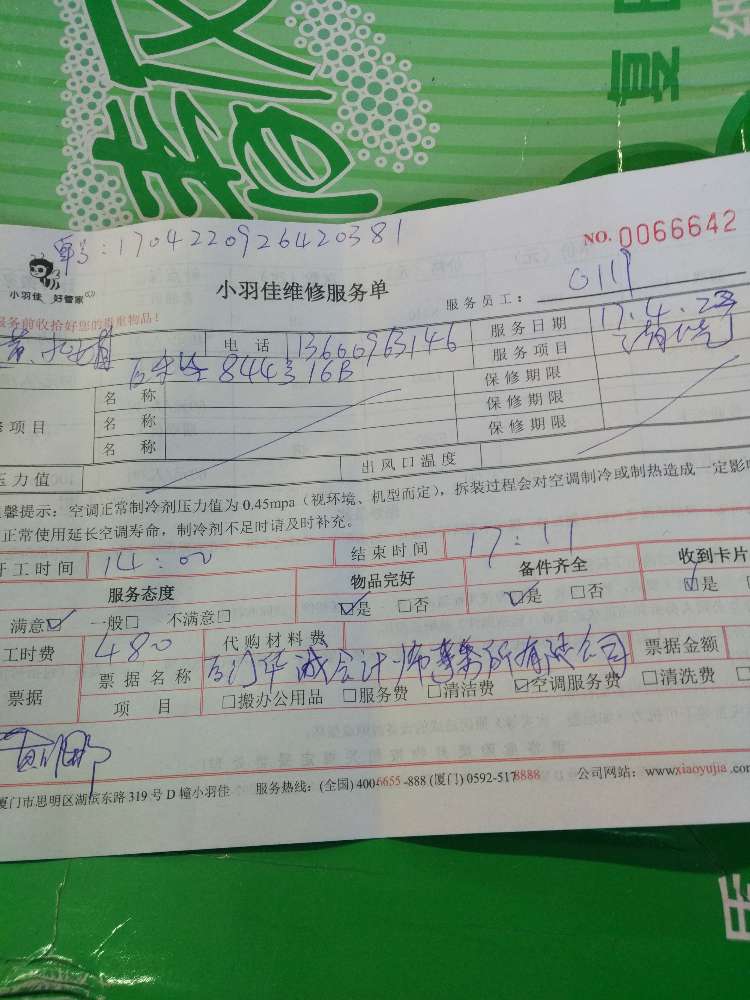 单号:1704220926420381
NO. 0066642
小羽佳 好管家
小羽佳维修服务单
服务员工: 0111
服务前收拾好您的贵重物品!
电话 13600963146 服务日期 17.4.23
844号16B 服务项目
名称 保修期限
修项目 名称 保修期限
名称 保修期限
压力值 出风口温度
温馨提示:空调正常制冷剂压力值为 0.45mpa(视环境、机型而定),拆装过程会对空调制冷或制热造成一定影响
正常使用延长空调寿命,制冷剂不足时请及时补充。
开工时间 14:00 结束时间 17:11
服务态度 物品完好 备件齐全 收到卡片
满意☑ 一般□ 不满意□ ☑是 □否 ☑是 □否 ☑是
工时费 480 代购材料费
票据 票据名称 厦门华诚会计师事务所有限公司 票据金额
项目 □搬办公用品 □服务费 □清洁费 ☑空调服务费 □清洗费
厦门市思明区湖滨东路 319 号 D 幢小羽佳 服务热线:(全国) 4006655-888 (厦门) 0592-5178888 公司网站:www.xiaoyujia.com